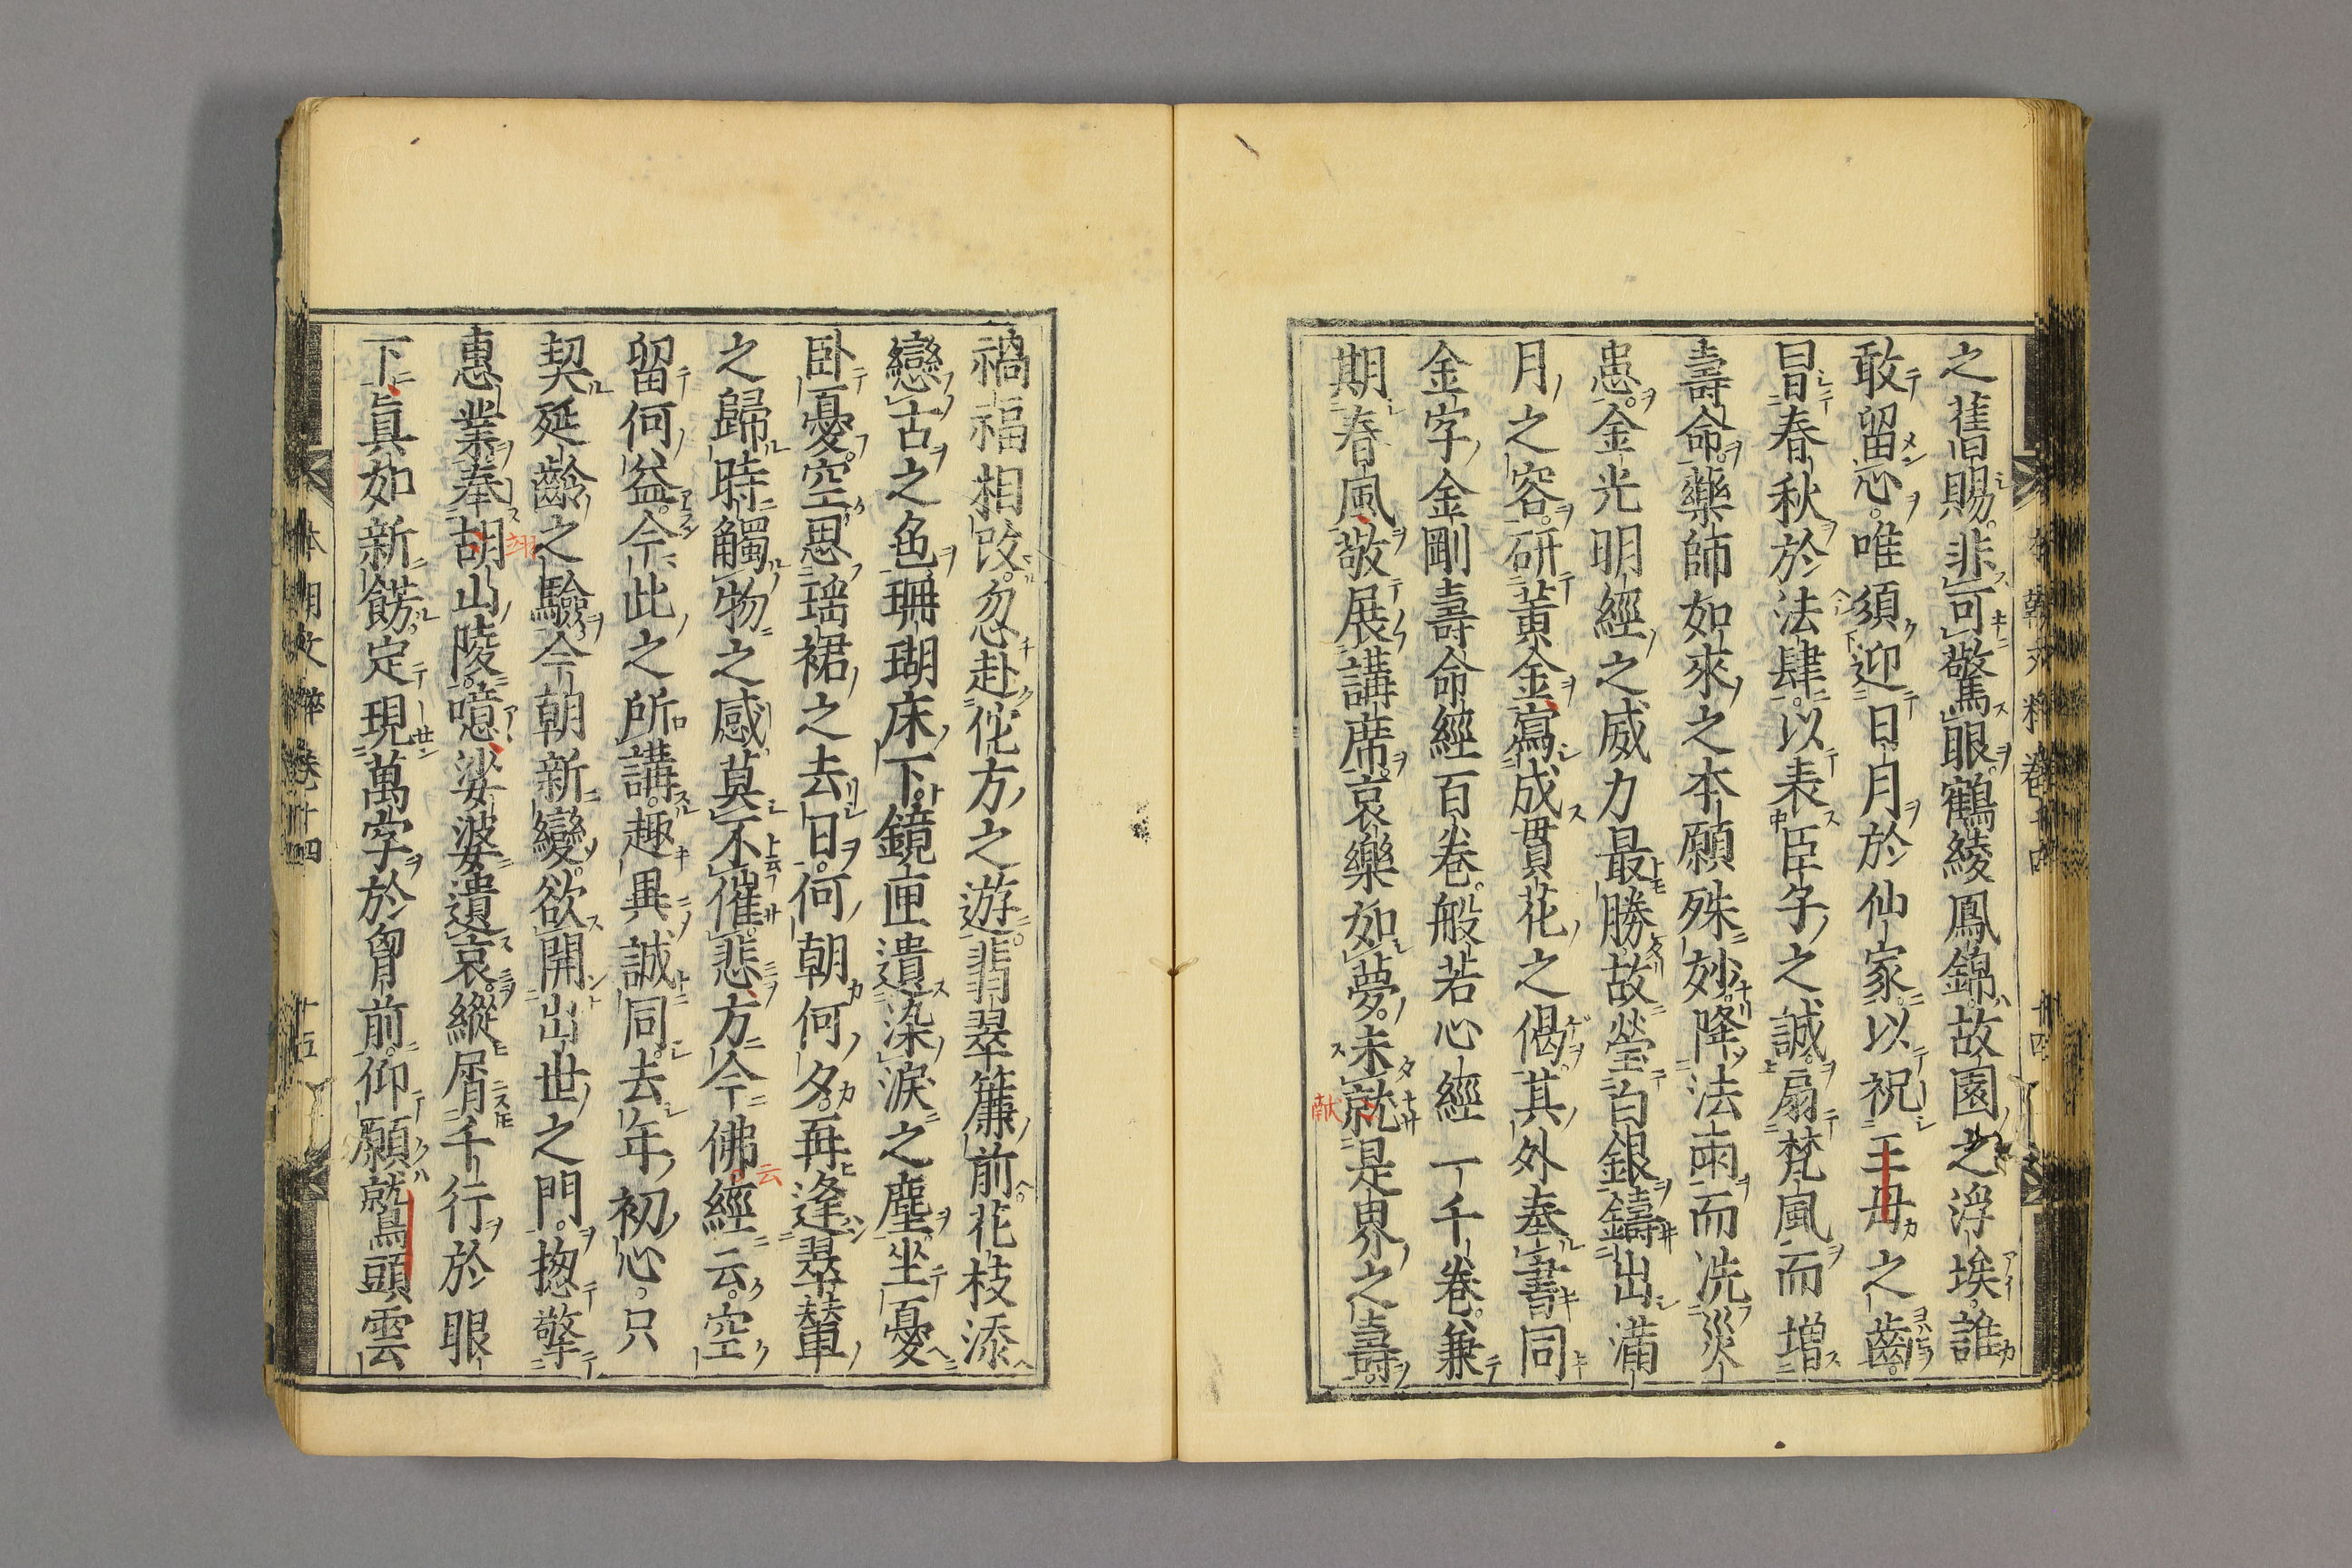 之舊賜非可驚眼鶴綾鳳錦故園之浮埃誰
敢留心唯須迎日月於仙家以祝王母之齒
冒春秋於法肆以表臣子之誠扇梵風而增
壽命藥師如來之本願殊妙降法雨而洗災
患金光明經之威力最勝故瑩白銀鑄出滿
月之容研黃金寫成貫花之偈其外奉書同
金字金剛壽命經百卷般若心經一千卷兼
期春風敬展講席哀樂如夢未就是界之壽
献
本朝文粹卷十四
十四
禍福相改忽赴他方之遊翡翠簾前花枝添
戀古之色珊瑚床下鏡匣遺染淚之塵坐憂
臥憂空思瑤裾之去日何朝何夕再逢翠輦
之歸時觸物之感莫不催悲方今佛經云空
云
留何益今此之所講趣異誠同去年初心只
契延齡之驗今朝新變欲開出世之門揔擎
惠業奉胡山陵噫娑婆遺哀縱屑千行於眼
翊
下真如新餝定現萬字於胷前仰願鷲頭雲
本朝文粹卷十四
十五